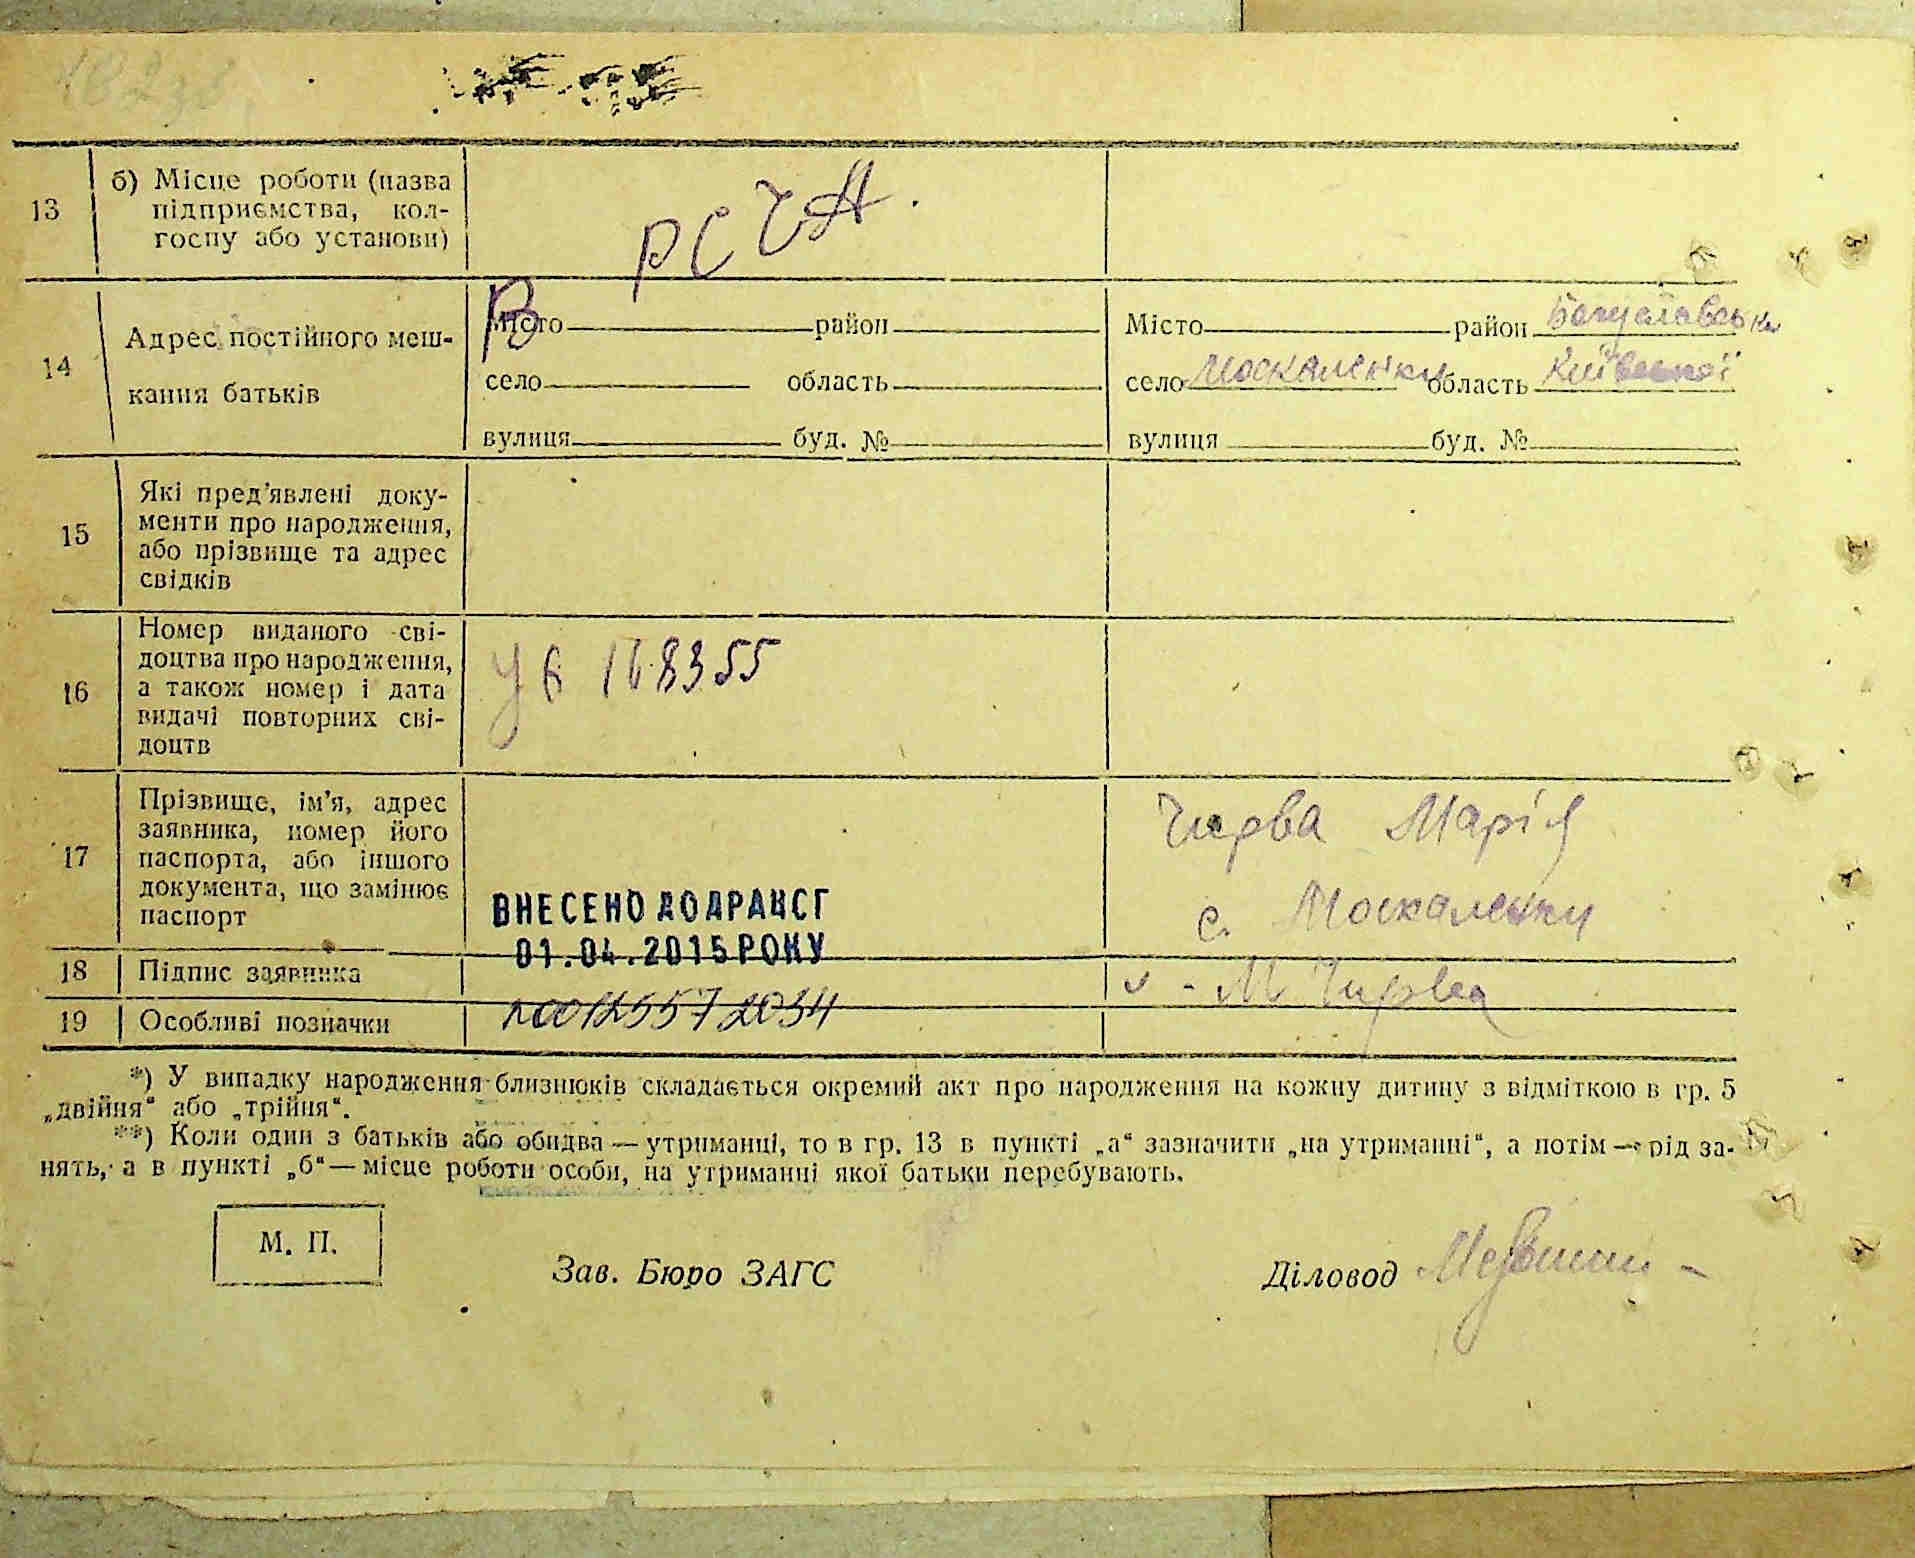 182зв
13
б) Місце роботи (назва
підприємства, кол-
госпу або установи)
В РСЧА.
14
Адрес постійного меш-
кання батьків
Місто район
село область
вулиця буд. №
Місто район Богуславськ
село Москаленки область Київської
вулиця буд. №
15
Які пред'явлені доку-
менти про народження,
або прізвище та адрес
свідків
16
Номер виданого сві-
доцтва про народження,
а також номер і дата
видачі повторних сві-
доцтв
168355
17
Прізвище, ім'я, адрес
заявника, номер його
паспорта, або іншого
документа, що замінює
паспорт
ВНЕСЕНО ДО ДРАЦСГ
01.04.2015 РОКУ
Чирва Марія
с. Москаленки
18
Підпис заявника
М Чирва
19
Особливі позначки
00125572034
*) У випадку народження близнюків складається окремий акт про народження на кожну дитину з відміткою в гр. 5
„двійня“ або „трійня“.
**) Коли один з батьків або обидва — утриманці, то в гр. 13 в пункті „а“ зазначити „на утриманні“, а потім — рід за-
нять, а в пункті „б“ — місце роботи особи, на утриманні якої батьки перебувають.
М. П.
Зав. Бюро ЗАГС
Діловод